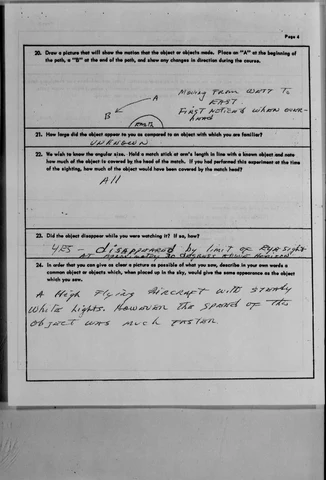 Page 6
20. Draw a picture that will show the motion that the object or objects made. Place an "A" at the beginning of
the path, a "B" at the end of the path, and show any changes in direction during the course.
Moving From West to
East.
First noticed when over-
head
A
B
EARTH
21. How large did the object appear to you as compared to an object with which you are familiar?
UNKNOWN
22. We wish to know the angular size. Hold a match stick at arm's length in line with a known object and note
how much of the object is covered by the head of the match. If you had performed this experiment at the time
of the sighting, how much of the object would have been covered by the match head?
All
23. Did the object disappear while you were watching it? If so, how?
YES - disappeared by limit of eyesight
AT APPROXIMATELY 30 DEGREES ABOVE HORIZON
24. In order that you can give as clear a picture as possible of what you saw, describe in your own words a
common object or objects which, when placed up in the sky, would give the same appearance as the object
which you saw.
A High Flying Aircraft with steady
White Lights. However the speed of the
object was much faster